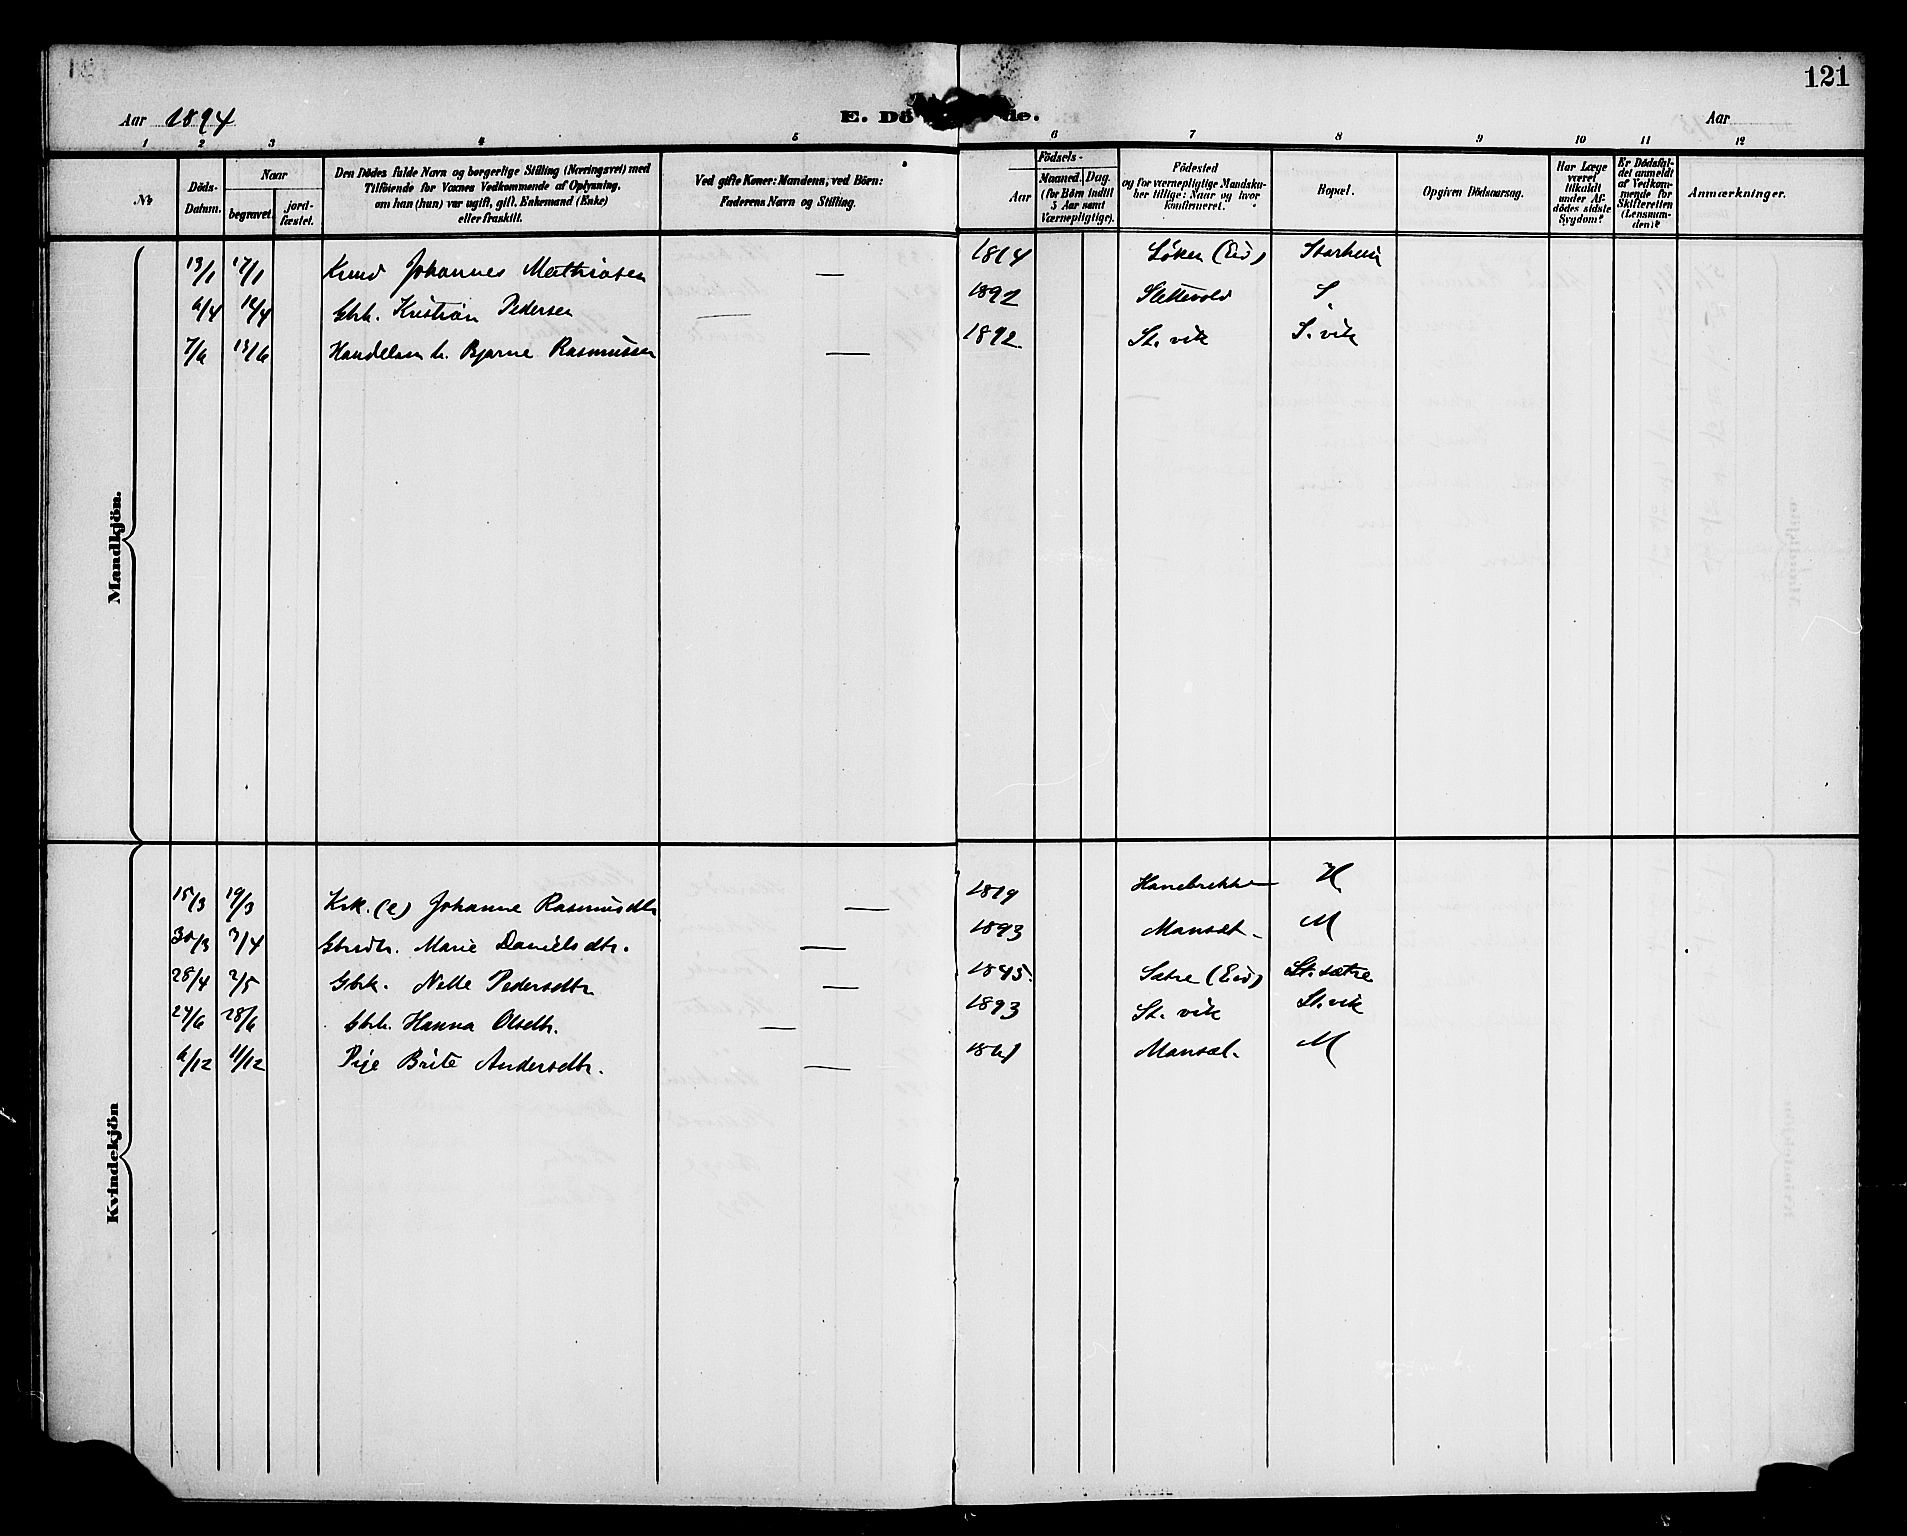 121
Aar 1894
E. Dö de.
Aar
1 2 3 4 5 6 7 8 9 10 11 12
No
Döds-Datum.
Naar
begravet.
jord-fæstet.
Den Dödes fulde Navn og borgerlige Stilling (Næringsvei) med
Tilföiende for Voxnes Vedkommende af Oplysning,
om han (hun) var ugift, gift, Enkemand (Enke)
eller fraskilt.
Ved gifte Koner: Mandens, ved Börn:
Faderens Navn og Stilling.
Födsels-
Aar
Maaned. Dag.
(for Börn indtil
5 Aar samt
Værnepligtige).
Födested
og for værnepligtige Mandsku-
ber tillige: Naar og hvor
konfirmeret.
Bopæl.
Opgiven Dödsaarsag.
Har Læge
været
tilkaldt
under Af-
dödes sidste
Sygdom?
Er Dödsfal-
det anmeldt
af Vedkom-
mende for
Skifteretten
(Lensman-
den)?
Anmærkninger.
Mandkjön.
13/1 17/1 Knud Johannes Mathiasen — 1814 Løken (Eid) Starheim
6/4 12/4 Gbk. Kristian Pedersen — 1892 Slettevold S.
7/6 13/6 Handelsm. Bjarne Rasmussen — 1892 St. vik S. vik
Kvindekjön
15/3 19/3 Krk. (e) Johanne Rasmusdtr — 1819 Hanebrekke H
30/3 3/4 Gbrdtr. Marie Danielsdtr. — 1893 Mansæt. M
28/4 2/5 Gbrk. Nelle Pedersdtr — 1845. Sætre (Eid) St. sætre
24/6 28/6 Gbrk. Hanna Olsdtr. — 1893 St. vik St. vik
6/12 11/12 Pige Brite Andersdtr. — 1861 Mansæt. M